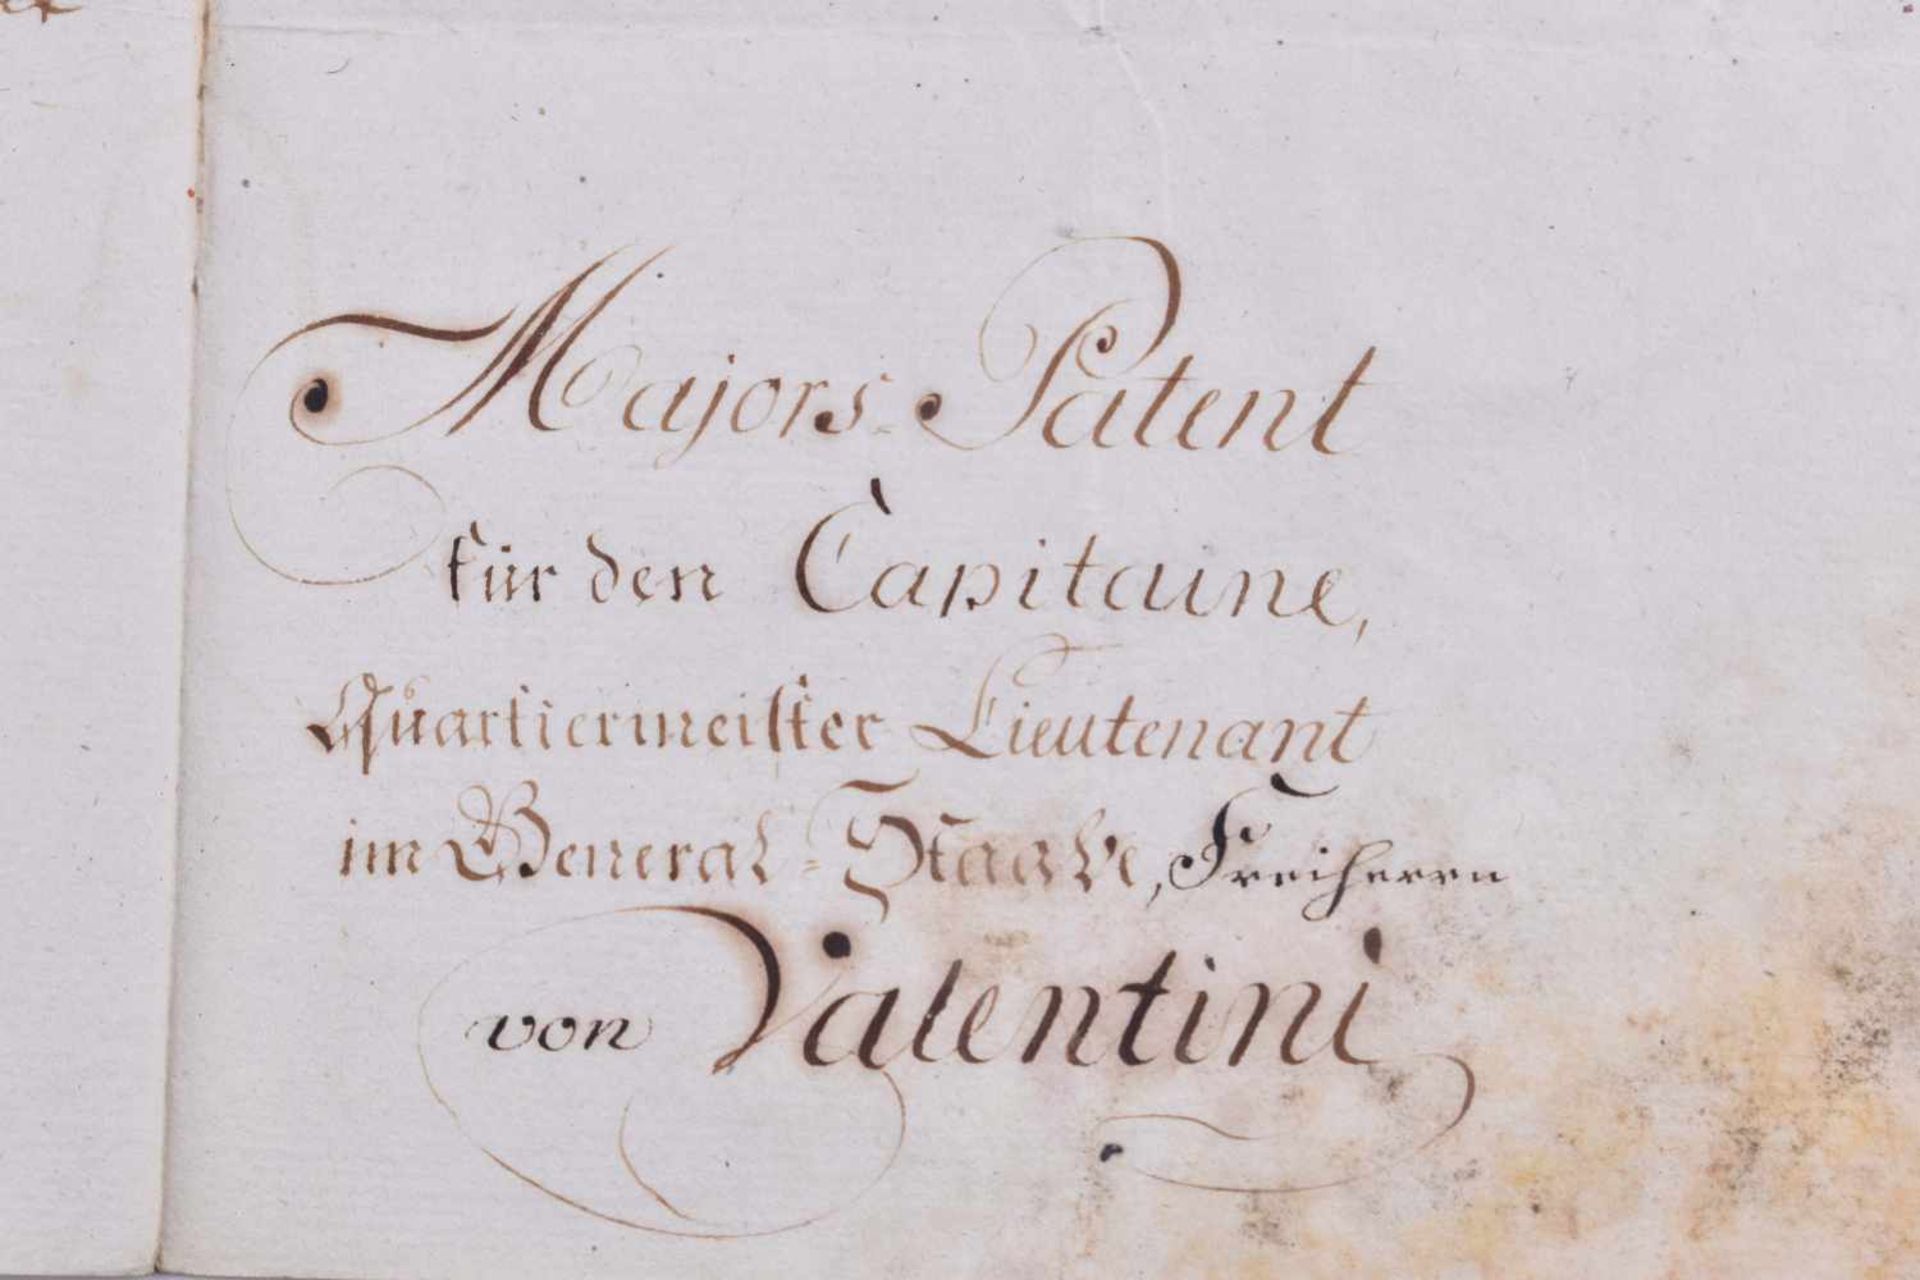 Majors-Patent
für den Capitaine,
Quartiermeister Lieutenant
im General-Staabe, Freiherrn
von Valentini